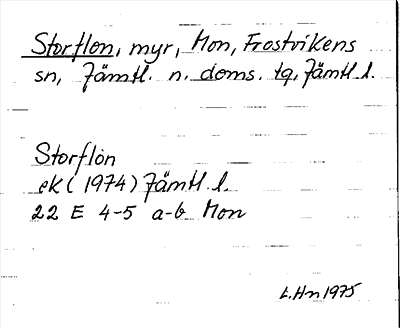 Storflon, myr, Mon, Frostvikens
sn, Jämtl. n. doms. tg, Jämtl. l.
Storflon
ek (1974) Jämtl l.
22 E 4-5 a-b Mon
L.Hn 1975